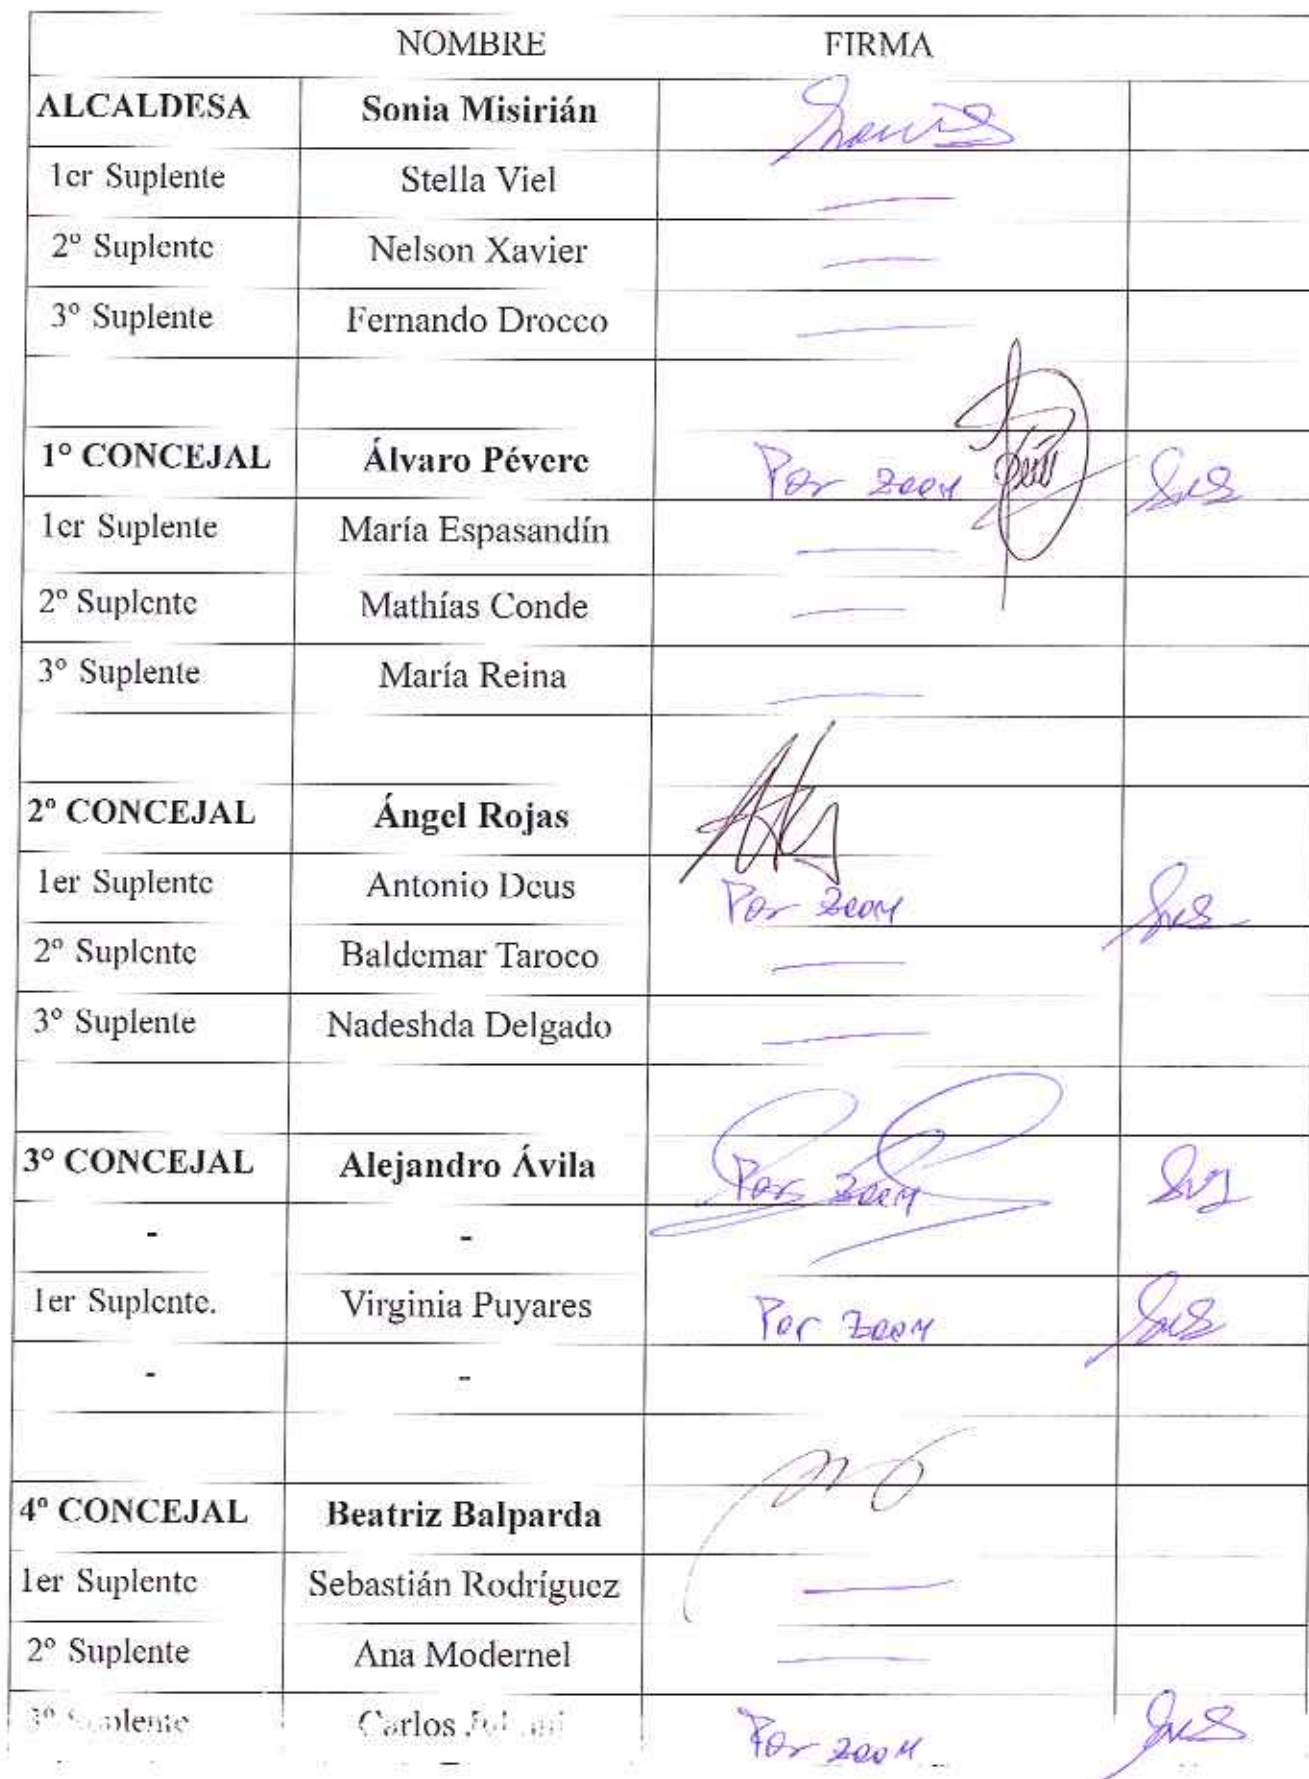 NOMBRE FIRMA
ALCALDESA Sonia Misirián
1er Suplente Stella Viel
2º Suplente Nelson Xavier
3º Suplente Fernando Drocco
1º CONCEJAL Álvaro Pévere Por zoom
1er Suplente María Espasandín
2º Suplente Mathías Conde
3º Suplente María Reina
2º CONCEJAL Ángel Rojas
1er Suplente Antonio Deus Por zoom
2º Suplente Baldemar Taroco
3º Suplente Nadeshda Delgado
3º CONCEJAL Alejandro Ávila Por zoom
- -
1er Suplente. Virginia Puyares Por zoom
- -
4º CONCEJAL Beatriz Balparda
1er Suplente Sebastián Rodríguez
2º Suplente Ana Modernel
3º Suplente Carlos Por zoom